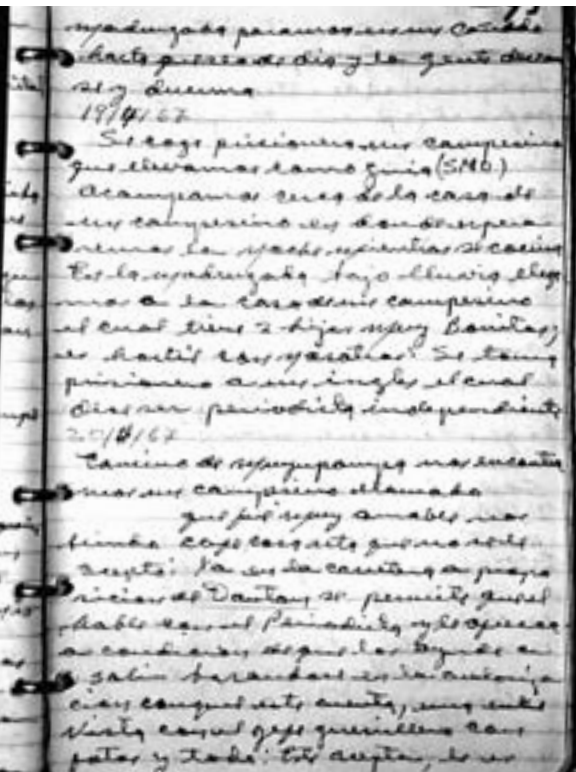 madrugada paramos en un cañado
hasta que sea de dia y la gente descan
se y duerma
19/4/67
Se coge prisionero un campesino
que llevamos como guia (S.M.O.)
Acampamos cerca de la casa de
un campesino en donde espera
remos la noche mientras se cocina
En la madrugada bajo lluvia llega
mos a la casa de un campesino
el cual tiene 2 hijas muy Bonitas y
es hostil con nosotros. Se toma
prisionero a un ingles el cual
dice ser periodista independiente
20/4/67
Camino de Muyupampa nos encontra
mos un campesino llamado
que fué muy amable nos
brinda café cosa esta que no se le
acepta. Ya en la carretera a propo
sicion de Danton se permite que el
hable con el Periodista y le ofrezca
a condicion de que los ayude a
salir basandose en la autoriza
cion conque este cuenta, una entre
vista con el gefe guerrillero con
fotos y todo: este acepta, es